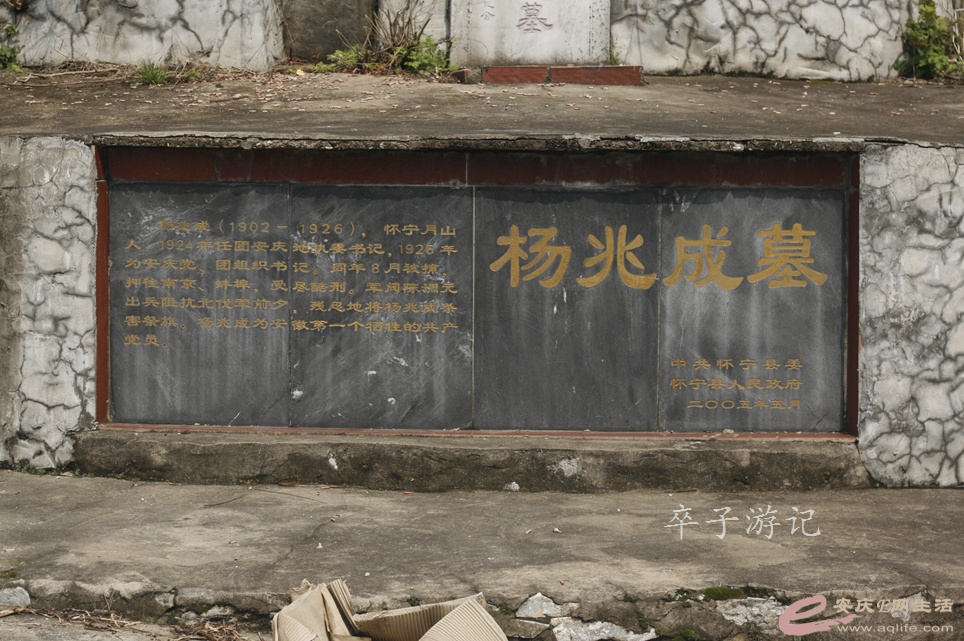 墓
杨兆成（1902－1926），怀宁月山
人。1924年任团安庆地执委书记，1926年
为安庆党、团组织书记。同年8月被捕，
押往南京、蚌埠，受尽酷刑。军阀陈调元
出兵阻抗北伐军前夕，残忍地将杨兆成杀
害祭旗。杨兆成为安徽第一个牺牲的共产
党员。
杨兆成墓
中共怀宁县委
怀宁县人民政府
二〇〇五年五月
卒子游记
安庆E网生活
www.aqlife.com